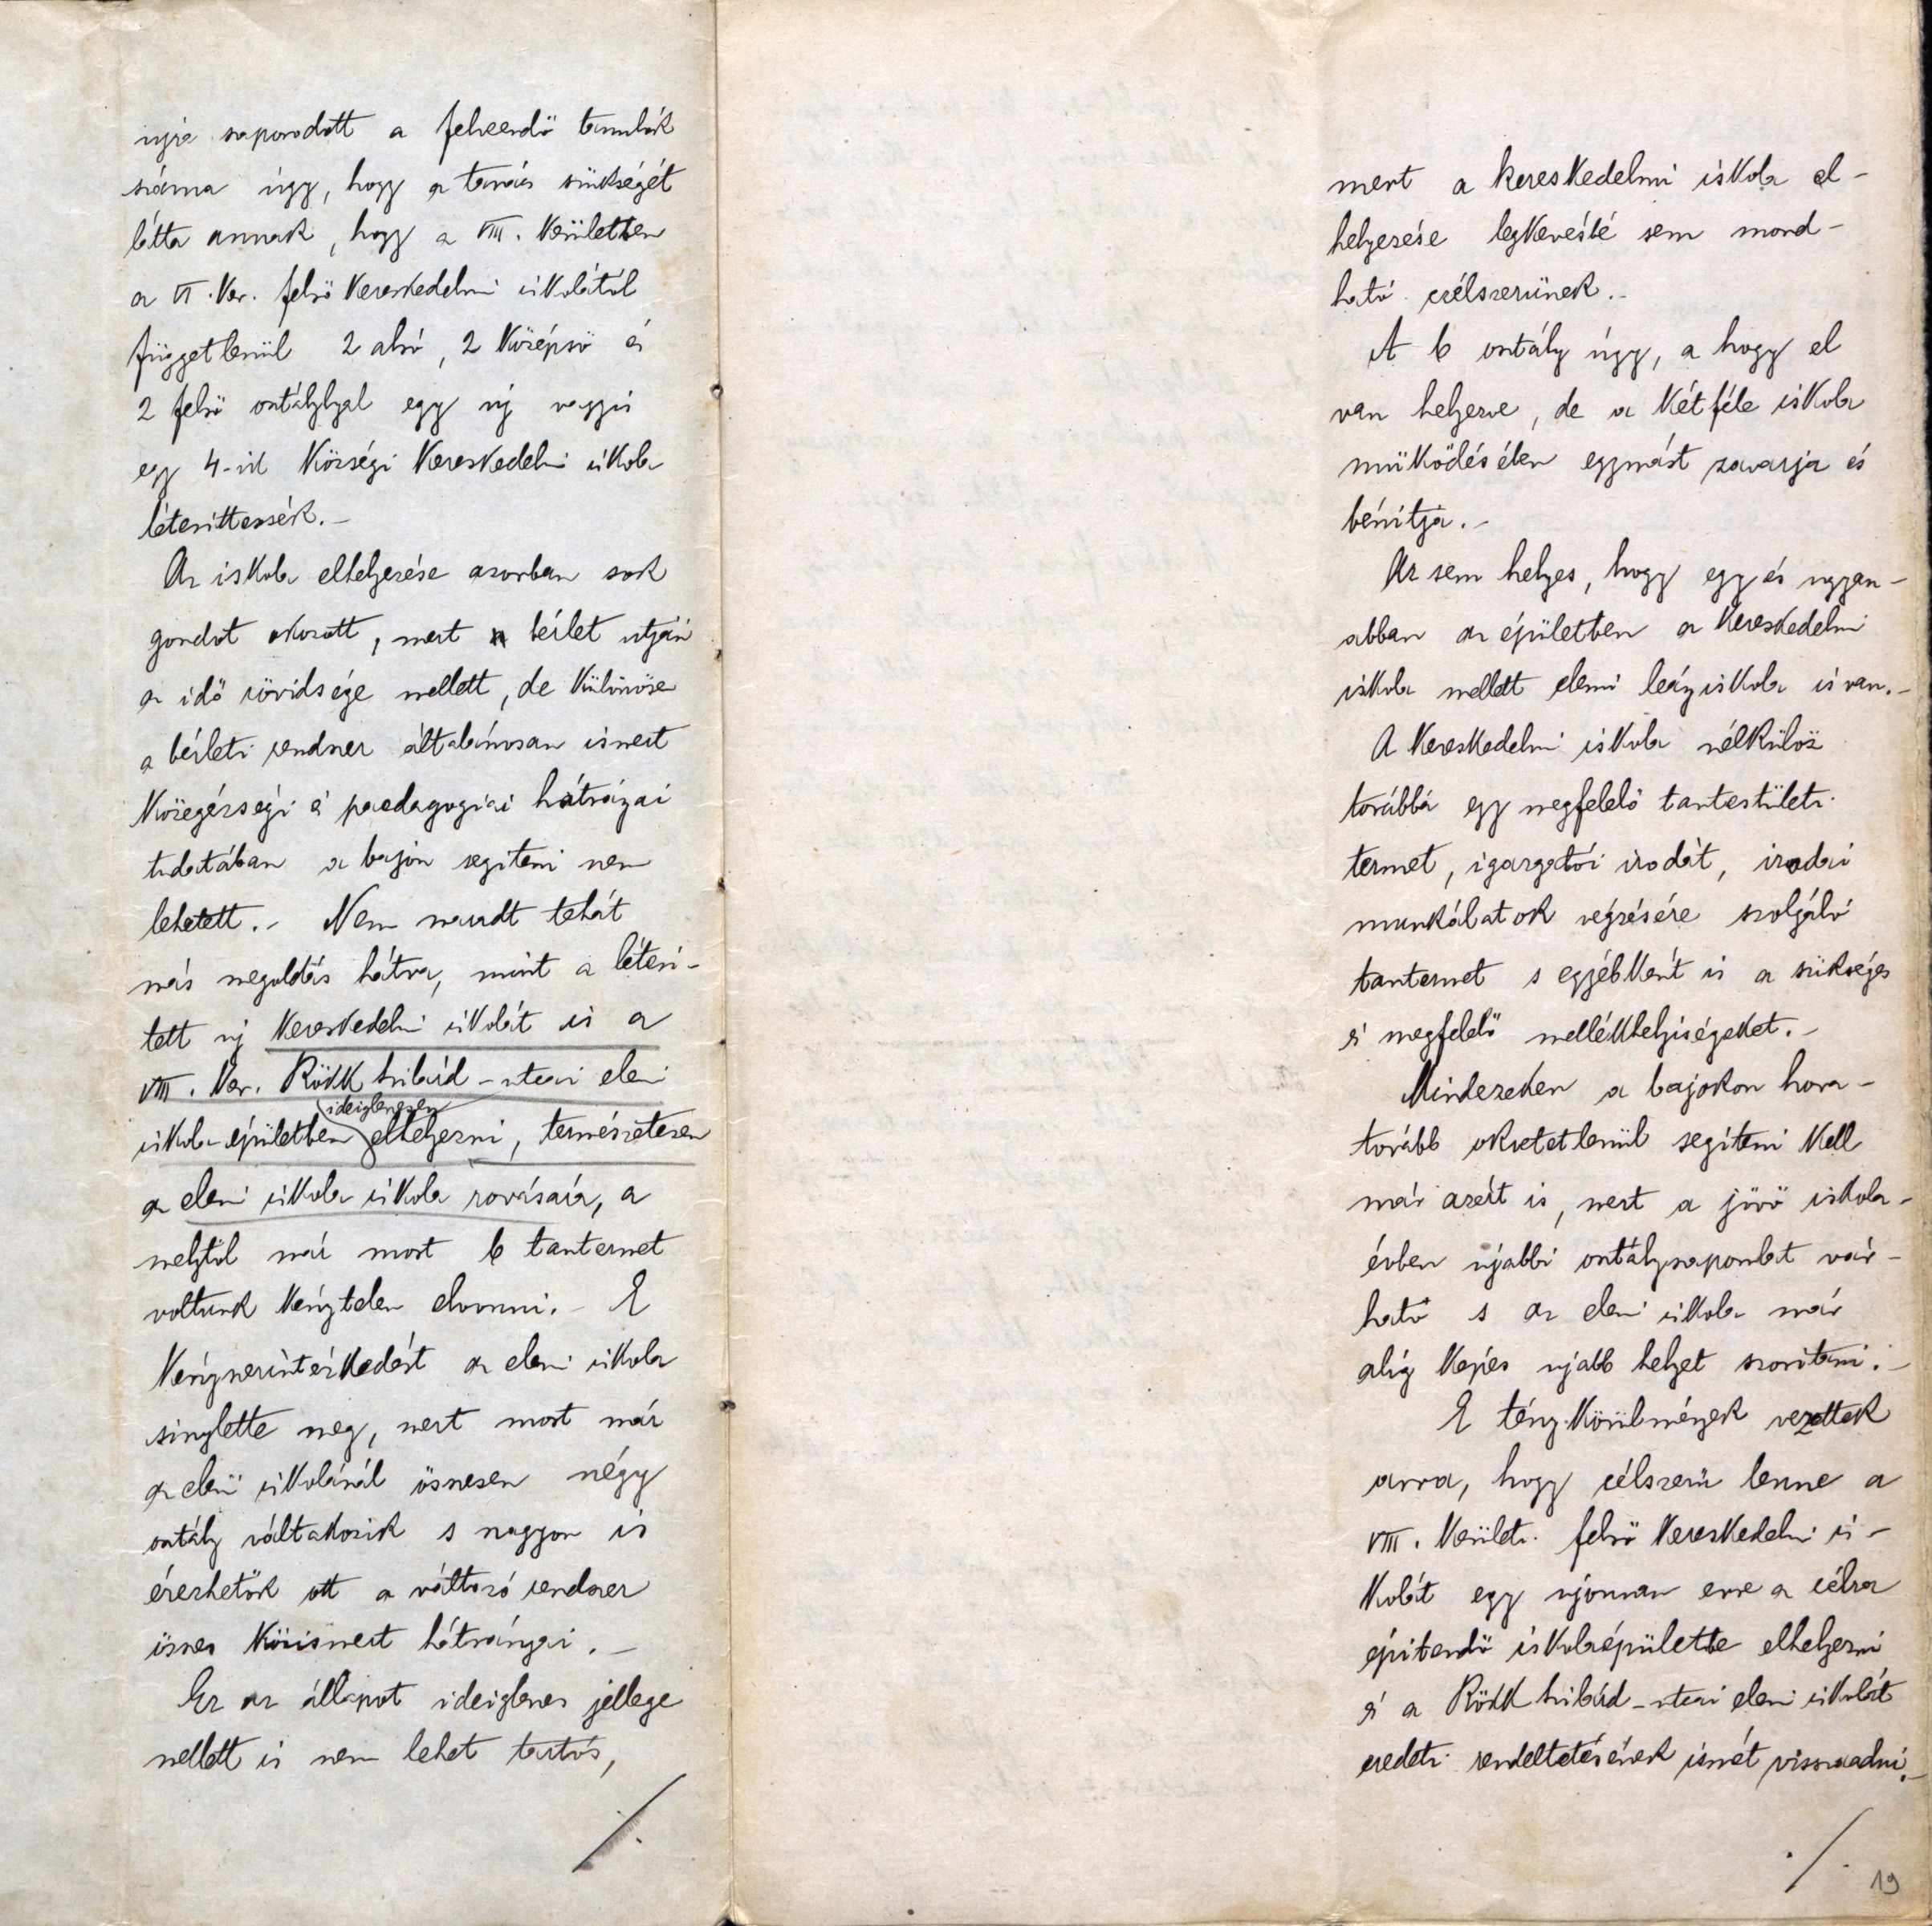 ujra szaporodott a felveendő tanulók
száma úgy, hogy a tanács szükségét
látta annak, hogy a VIII. kerületben
a VI. ker. felső kereskedelmi iskolától
függetlenül 2 alsó, 2 középső és
2 felső osztálylyal egy új vagyis
egy 4-ik községi kereskedelmi iskola
létesittessék.-
Az iskola elhelyezése azonban sok
gondot okozott, mert bérlet utján
az idő rövidsége mellett, de különösen
a bérleti rendszer általánosan ismert
közegészségi és paedagogiai hátrányai
tudatában a bajon segiteni nem
lehetett.- Nem maradt tehát
más megoldás hátra, mint a létesi-
tett uj kereskedelmi iskolát is a
VIII. ker. Rökk Szilárd-utcai elemi
ideiglenesen
iskola épületben elhelyezni, természetesen
az elemi iskola iskola rovására, a
melytől már most 6 tantermet
voltunk kénytelen elvonni.- E
kényszerintézkedést az elemi iskola
sinylette meg, mert most már
az elemi iskolánál összesen négy
osztály váltakozik s nagyon is
érezhetők ott a változó rendszer
összes közismert hátrányai.-
Ez az állapot ideiglenes jellege
mellett is nem lehet tartós,
./.
mert a kereskedelmi iskola el-
helyezése legkevésbé sem mond-
ható czélszerünek.-
A 6 osztály úgy, a hogy el
van helyezve, de a kétféle iskola
müködésében egymást zavarja és
bénitja.-
Az sem helyes, hogy egy és ugyan-
abban az épületben a kereskedelmi
iskola mellett elemi leányiskola is van.-
A kereskedelmi iskola nélkülöz
továbbá egy megfelelő tantestületi
termet, igazgatói irodát, irodai
munkálatok végzésére szolgáló
tantermet s egyébként is a szükséges
és megfelelő mellékhelyiségeket.-
Mindezeken a bajokon hova-
tovább okvetetlenül segíteni kell
már azért is, mert a jövő iskola-
évben ujabbi osztályszaporulat vár-
ható s az elemi iskola már
alig képes ujabb helyet szoritani.-
E ténykörülmények vezettek
arra, hogy célszerü lenne a
VIII. kerületi felső kereskedelmi is-
kolát egy ujonnan erre a célra
épitendő iskolaépületbe elhelyezni
és a Rökk Szilárd-utcai elemi iskolát
eredeti rendeltetésének ismét visszaadni.-
./.
19